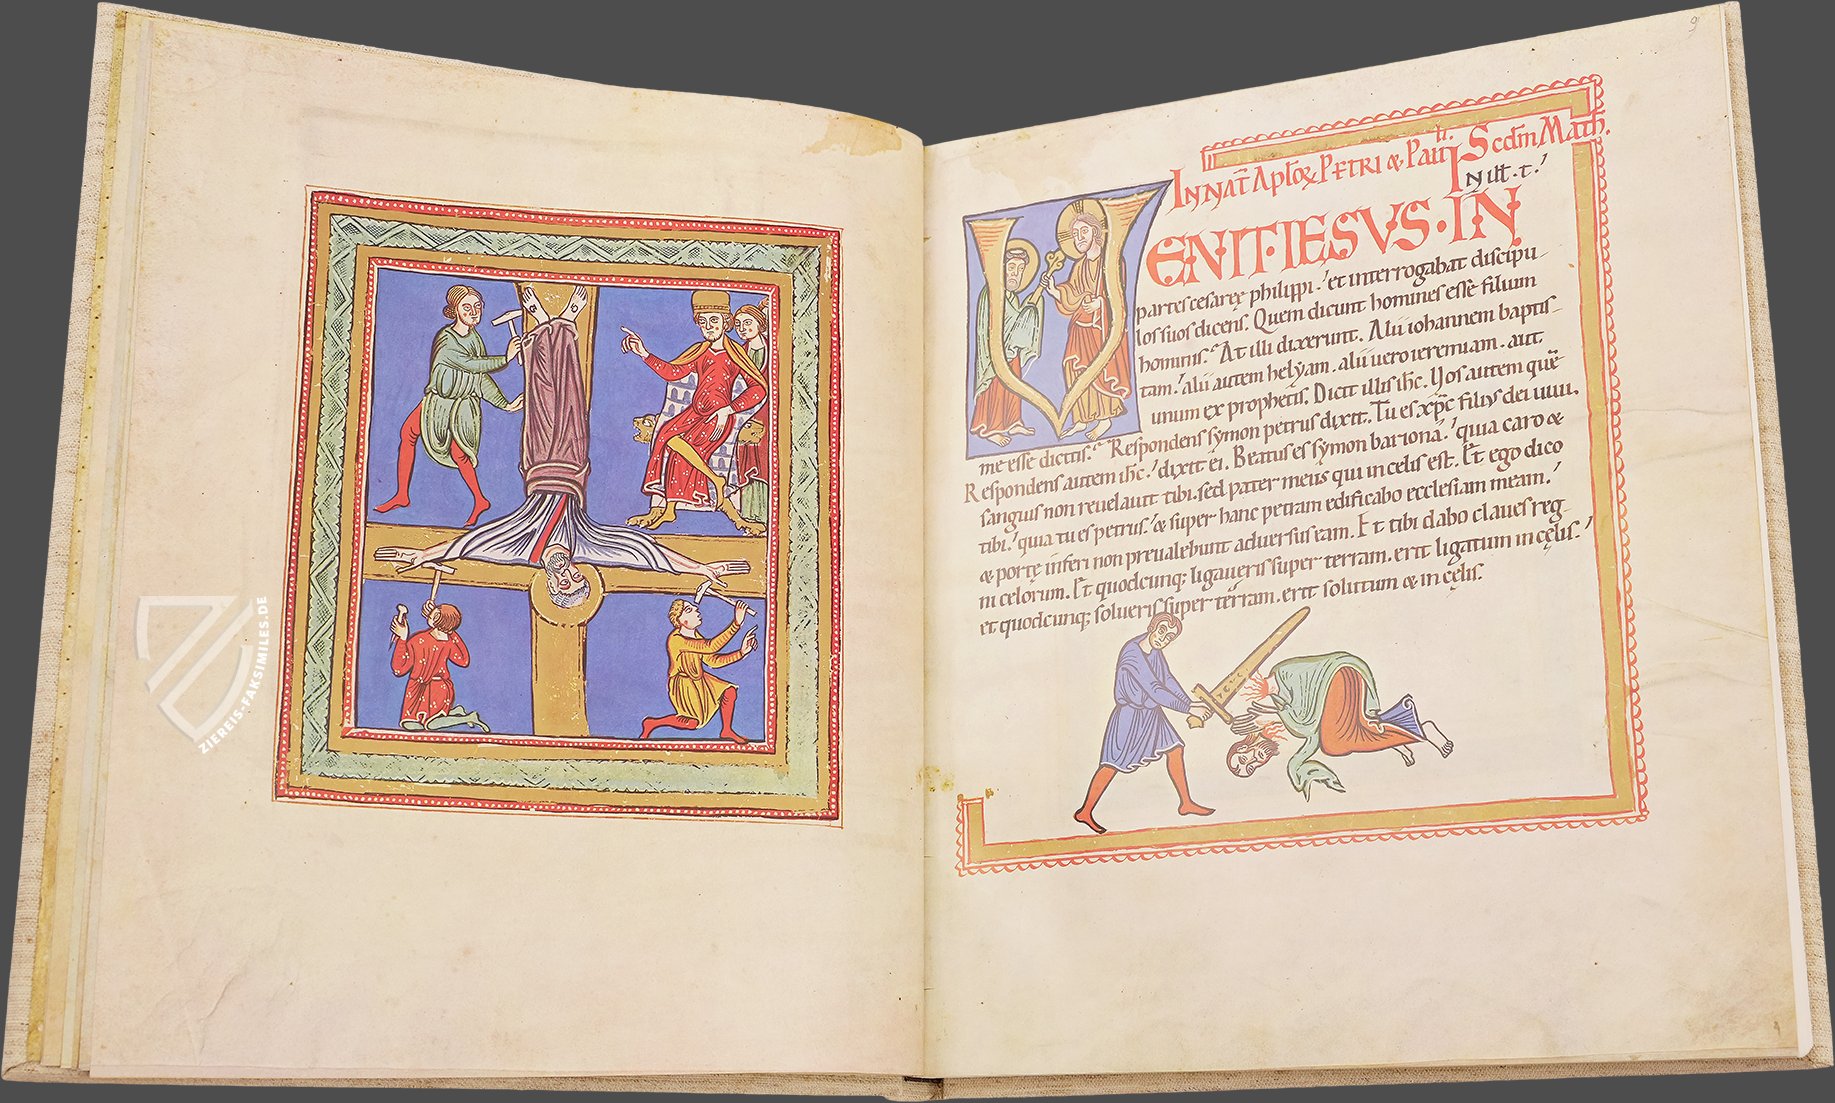 ZIEREIS-FAKSIMILES.DE
9
IN NAT̄ APLOꝝ PETRI & PAULI. Scdm Math.
IN ill. t.
VENIT· IESVS· IN
partes cesareę philippi. et interrogabat discipu-
los suos dicens. Quem dicunt homines esse filium
hominis. At illi dixerunt. Alii iohannem baptis-
tam. alii autem helyam. alii uero ieremiam. aut
unum ex prophetis. Dicit illis ihc. Uos autem que̅
me esse dicitis. Respondens symon petrus dixit. Tu es xp̅c filius dei uiui.
Respondens autem ihc. dixit ei. Beatus es symon bariona. quia caro &
sanguis non reuelauit tibi. sed pater meus qui in celis est. Et ego dico
tibi. quia tu es petrus. & super hanc petram edificabo ecclesiam meam.
& portę inferi non preualebunt aduersus eam. Et tibi dabo claues reg-
ni celorum. Et quodcunq; ligaueris super terram. erit ligatum in cęlis.
et quodcunq; solueris super terram. erit solutum & in cęlis.